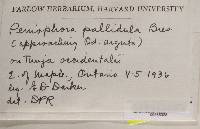 FARLOW HERBARIUM, HARVARD UNIVERSITY
Peniophora pallidula Bres
(approaching Od. arguta)
on Tsuga occidentalis
E. of Maple, Ontario 4-5 1936
leg. E D Darker
det. DPR